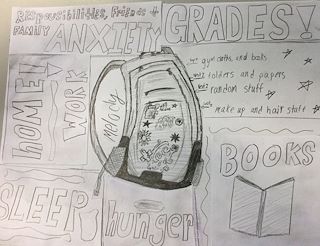 Responsibilities, Friends +
FAMILY
ANXIETY
GRADES!
gym cloths, and balls
folders and papers
random stuff
make up and hair stuff
HOME
WORK
Melody
BOOKS
SLEEP
hunger